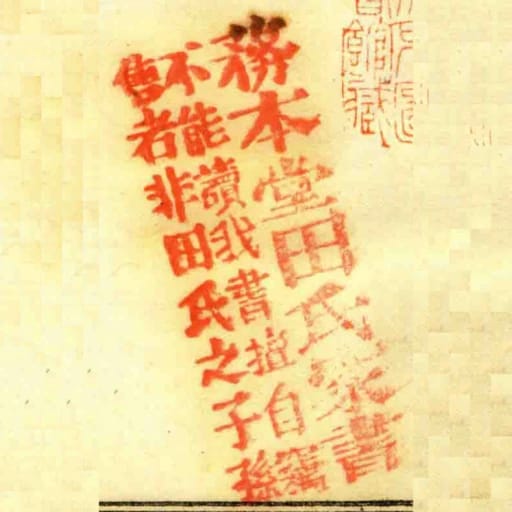 務本堂田氏家書
不能讀我書擅自鬻
售者非田氏之子孫